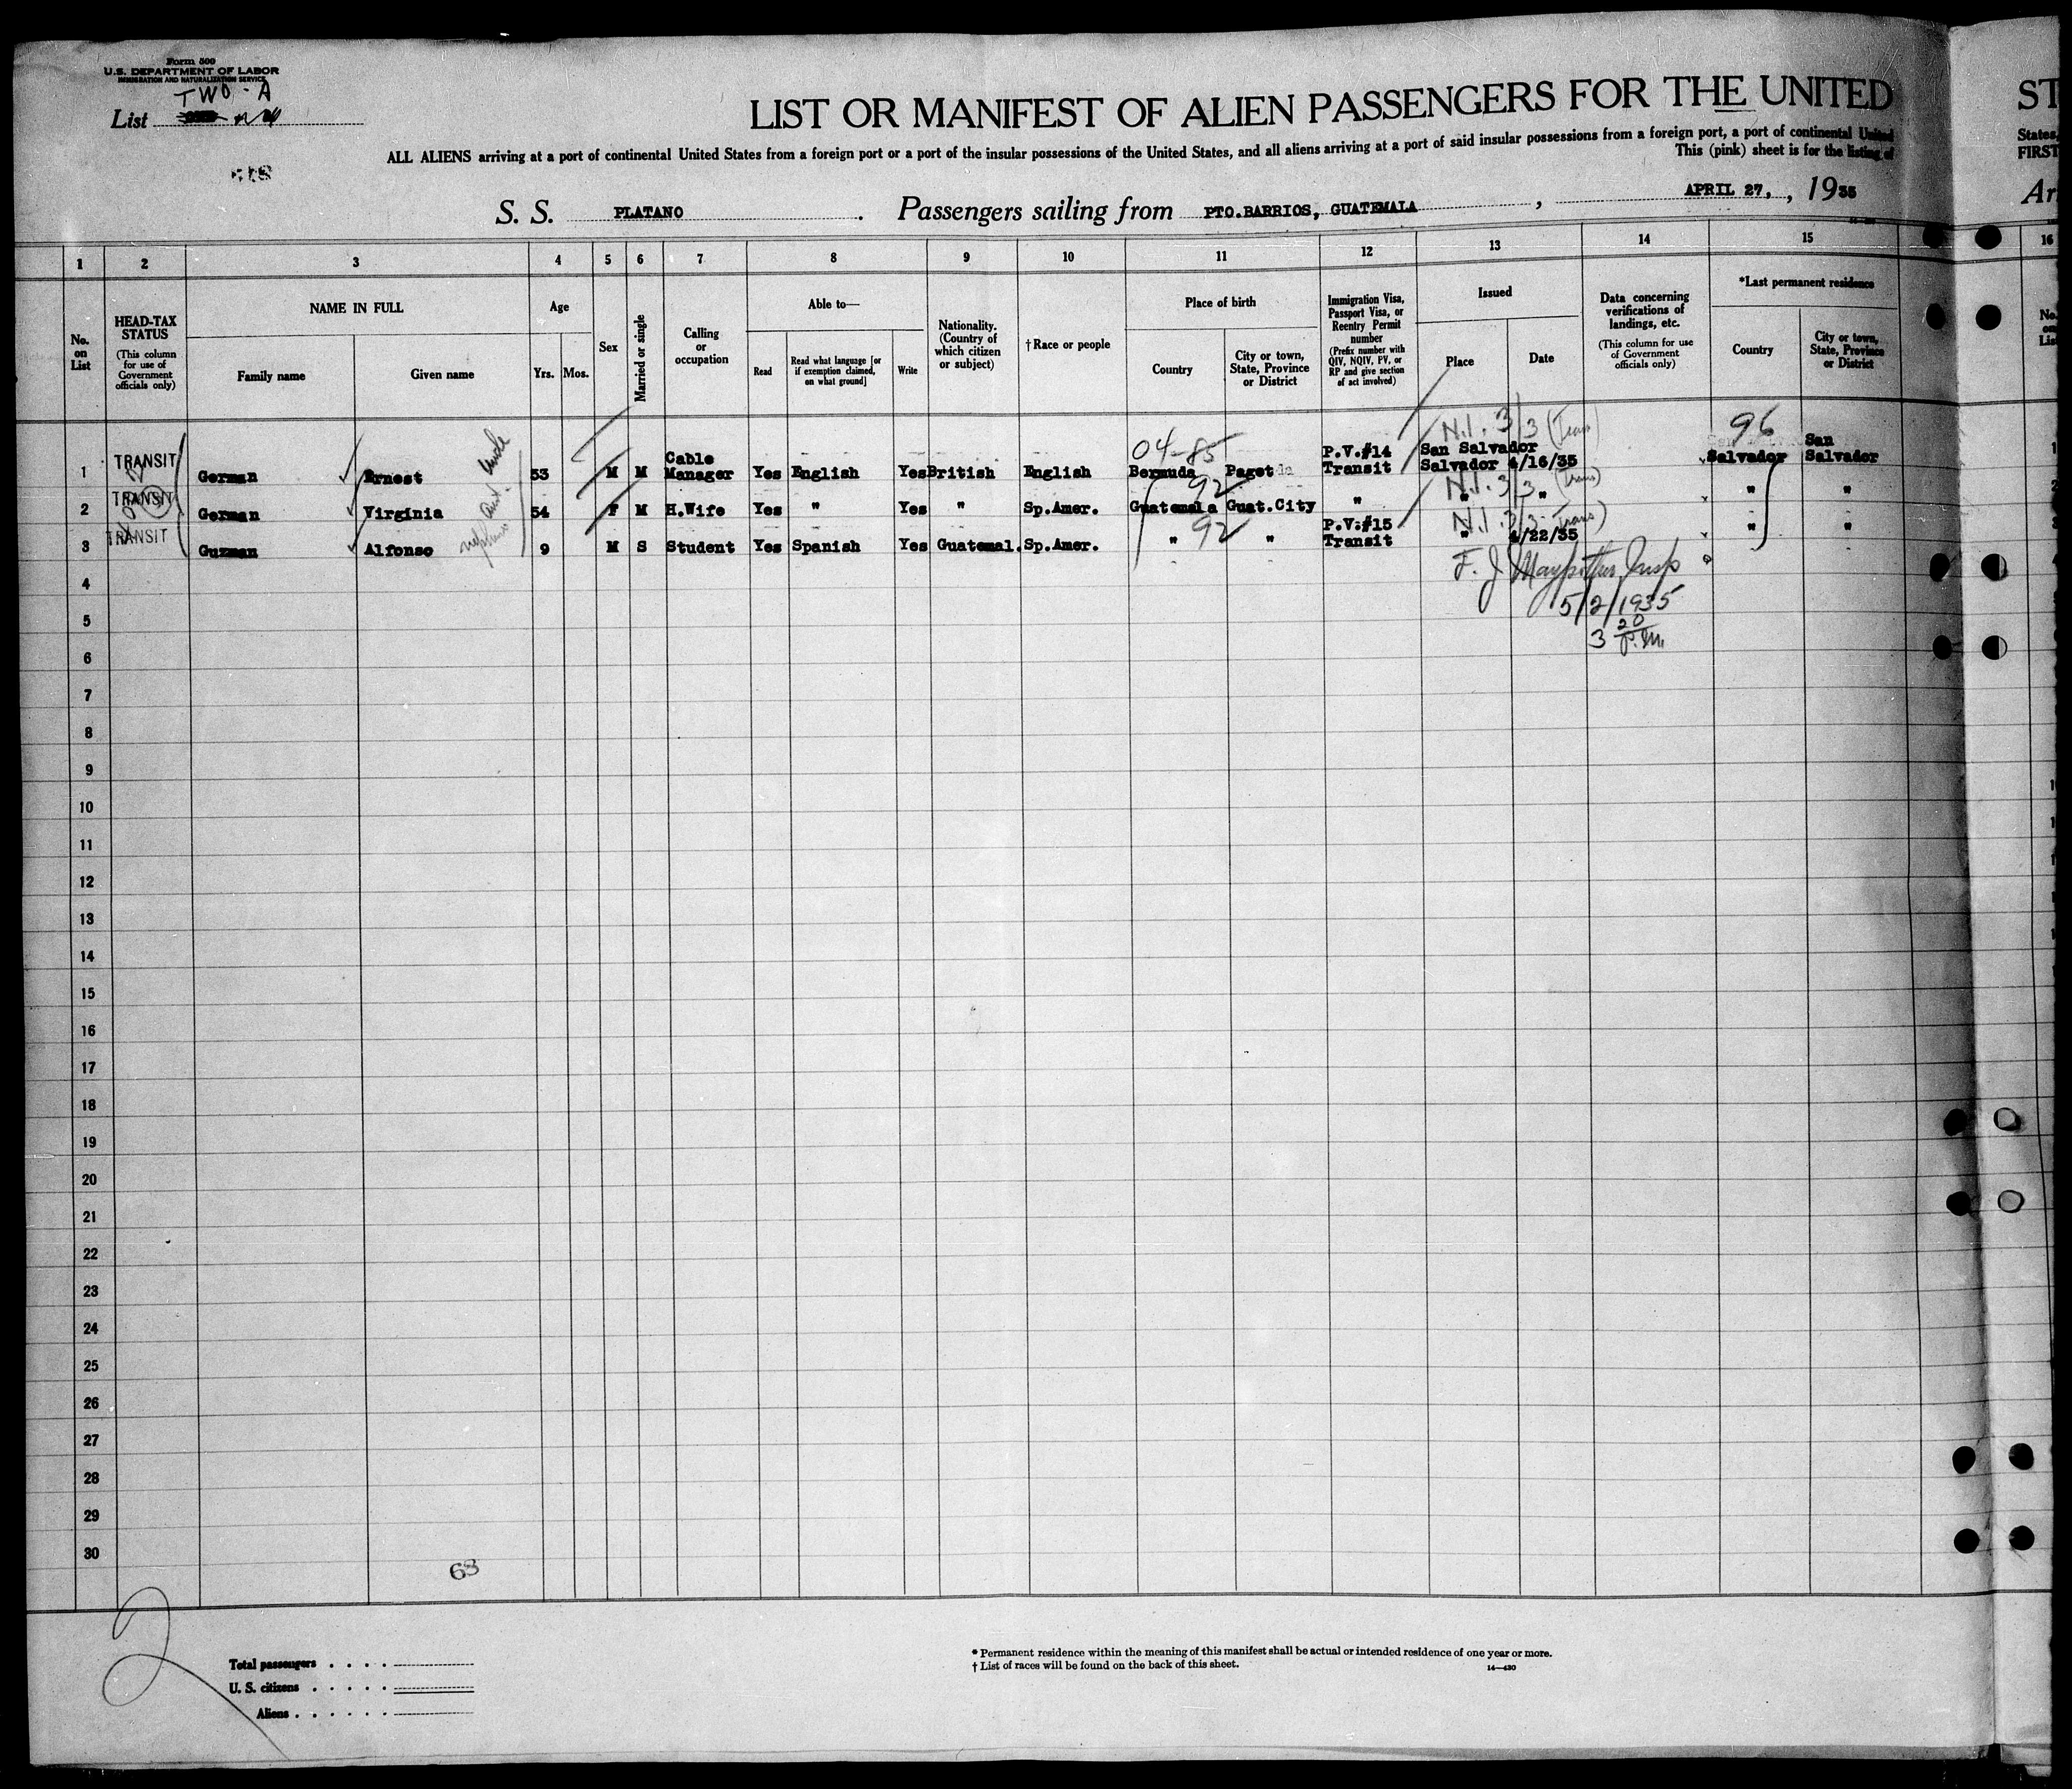 Form 500
U.S. DEPARTMENT OF LABOR
IMMIGRATION AND NATURALIZATION SERVICE
TWO - A
List
LIST OR MANIFEST OF ALIEN PASSENGERS FOR THE UNITED
ST
ALL ALIENS arriving at a port of continental United States from a foreign port or a port of the insular possessions of the United States, and all aliens arriving at a port of said insular possessions from a foreign port, a port of continental United
States,
This (pink) sheet is for the listing of
FIRST
S. S. PLATANO . Passengers sailing from PTO.BARRIOS, GUATEMALA , APRIL 27, , 1935
Ar
1 2 3 4 5 6 7 8 9 10 11 12 13 14 15 16
No. on List
HEAD-TAX STATUS
(This column for use of Government officials only)
NAME IN FULL
Family name
Given name
Age
Yrs. Mos.
Sex
Married or single
Calling or occupation
Able to—
Read
Read what language [or if exemption claimed, on what ground]
Write
Nationality. (Country of which citizen or subject)
† Race or people
Place of birth
Country
City or town, State, Province or District
Immigration Visa, Passport Visa, or Reentry Permit number
(Prefix number with QIV, NQIV, PV, or RP and give section of act involved)
Issued
Place
Date
Data concerning verifications of landings, etc.
(This column for use of Government officials only)
*Last permanent residence
Country
City or town, State, Province or District
No. on List
04-85
N.I. 3/3 (Trans)
96
1 TRANSIT German Ernest 53 M M Cable Manager Yes English Yes British English Bermuda Paget P.V.#14 Transit San Salvador Salvador 4/16/35 Salvador San Salvador
uncle
aunt
nephew
92
N.I. 3/3 (Trans)
2 TRANSIT German Virginia 54 F M H.Wife Yes " Yes " Sp.Amer. Guatemala Guat.City " " " " "
92
N.I. 3/3 (Trans)
3 TRANSIT Guzman Alfonso 9 M S Student Yes Spanish Yes Guatemal. Sp.Amer. " " P.V.#15 Transit " 4/22/35 " "
4
5
6
7
8
9
10
11
12
13
14
15
16
17
18
19
20
21
22
23
24
25
26
27
28
29
30
5/2/1935
3 20 P.M.
68
2
Total passengers . . . .
U. S. citizens . . . . .
Aliens . . . . . .
* Permanent residence within the meaning of this manifest shall be actual or intended residence of one year or more.
† List of races will be found on the back of this sheet.
14—430